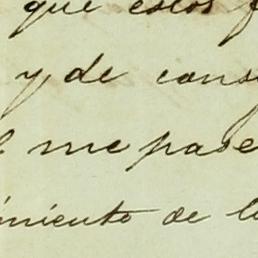 que estos f
y de cons
me pase
imiento de l